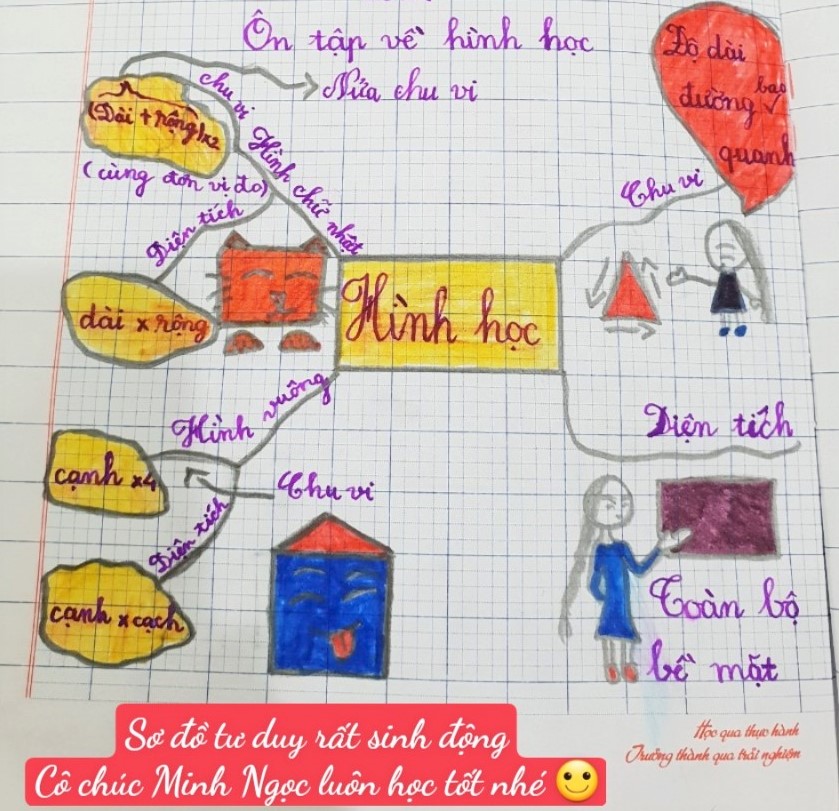 Ôn tập về hình học
(Dài + rộng)x2
chu vi
Nửa chu vi
(cùng đơn vị đo)
Hình chữ nhật
Diện tích
dài x rộng
Hình học
Độ dài
đường bao
quanh
Chu vi
Diện tích
Toàn bộ
bề mặt
Hình vuông
cạnh x4
Chu vi
Diện tích
cạnh x cạch
Sơ đồ tư duy rất sinh động
Cô chúc Minh Ngọc luôn học tốt nhé
Học qua thực hành
Trưởng thành qua trải nghiệm